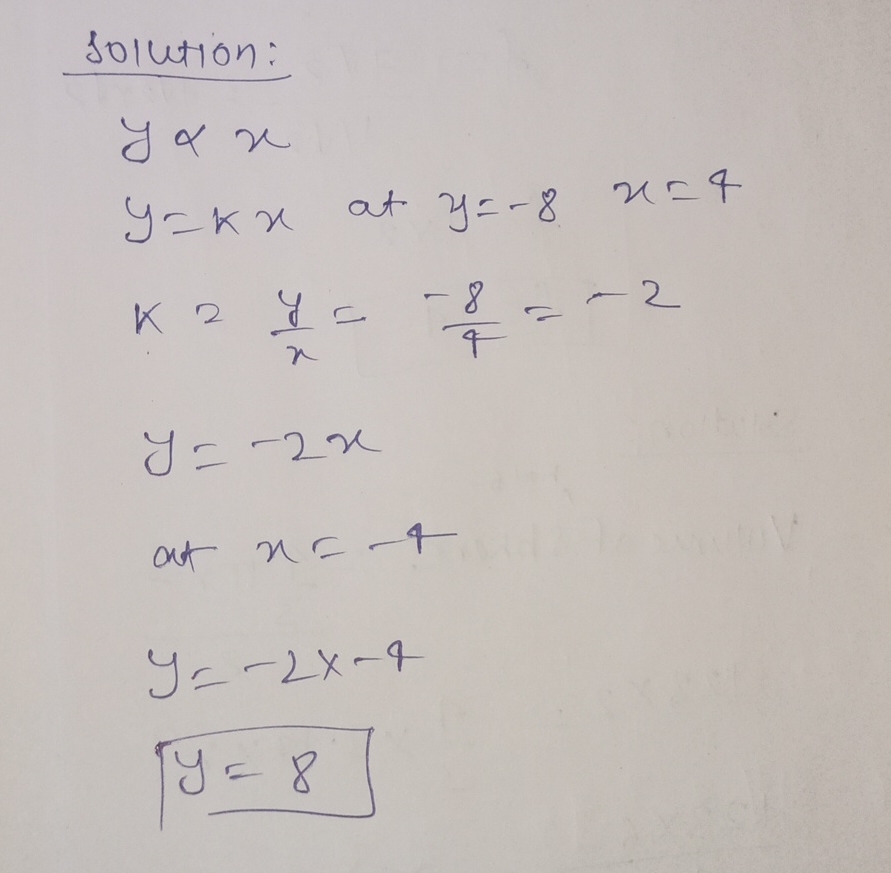 Solution:
y ∝ x
y = kx at y = -8 x = 4
k = y/x = -8/4 = -2
y = -2x
at x = -4
y = -2 × -4
y = 8